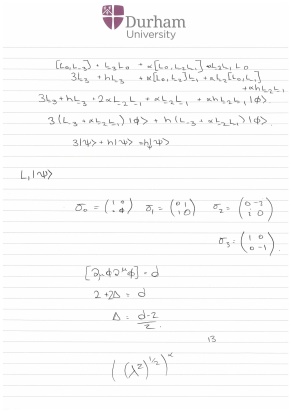 Durham
University
[L₀,L₋₃] + L₋₃L₀ + α[L₀,L₋₂L₋₁] + αL₋₂L₋₁L₀
3L₋₃ + hL₋₃ + α[L₀,L₋₂]L₋₁ + αL₋₂[L₀,L₋₁]
+ αhL₋₂L₋₁
3L₋₃ + hL₋₃ + 2αL₋₂L₋₁ + αL₋₂L₋₁ + αhL₋₂L₋₁ |ϕ⟩
3(L₋₃ + αL₋₂L₋₁)|ϕ⟩ + h(L₋₃ + αL₋₂L₋₁)|ϕ⟩
3|ψ⟩ + h|ψ⟩
L₁|ψ⟩
σ₀ = σ₁ = (0 1 / 1 0) σ₂ =
σ₃ = (1 0 / 0 -1)
[∂μϕ∂^μϕ] = d
2+2Δ = d
Δ = (d-2)/2.
13
((λ²)^{1/2})^α